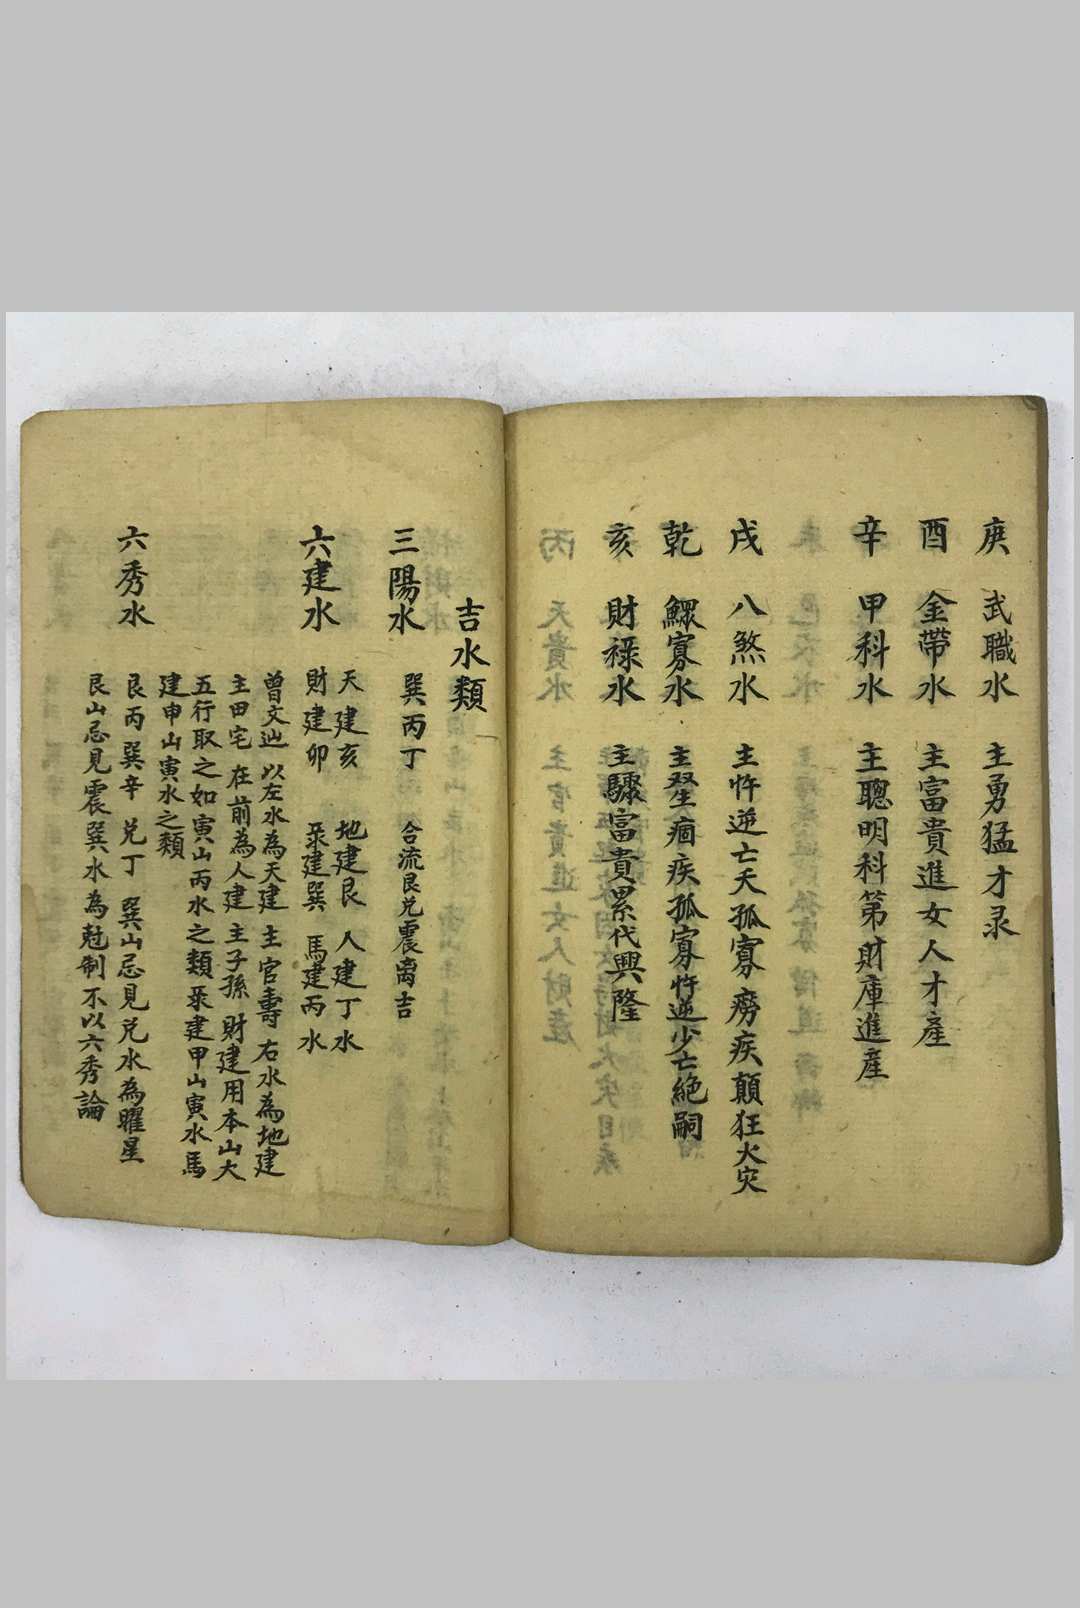 庚 武職水 主勇猛才彔
酉 金帶水 主富貴進女人才產
辛 甲科水 主聰明科第財庫進產
戌 八煞水 主忤逆亡夭孤寡癆疾顛狂火灾
乾 鰥寡水 主痼疾孤寡忤逆少亡絕嗣
亥 財祿水 主驟富貴累代興隆
吉水類
三陽水 巽丙丁 合流艮兌震离吉
六建水 天建亥 地建艮 人建丁水
財建卯 建巽 馬建丙水
曾文辿 以左水為天建 主官壽 右水為地建
主田宅 在前為人建 主子孫 財建用本山大
五行取之如寅山丙水之類 建甲山寅水馬
建申山寅水之類
六秀水 艮丙巽辛 兌丁 巽山忌見兌水為曜星
艮山忌見震巽水為尅制不以六秀論